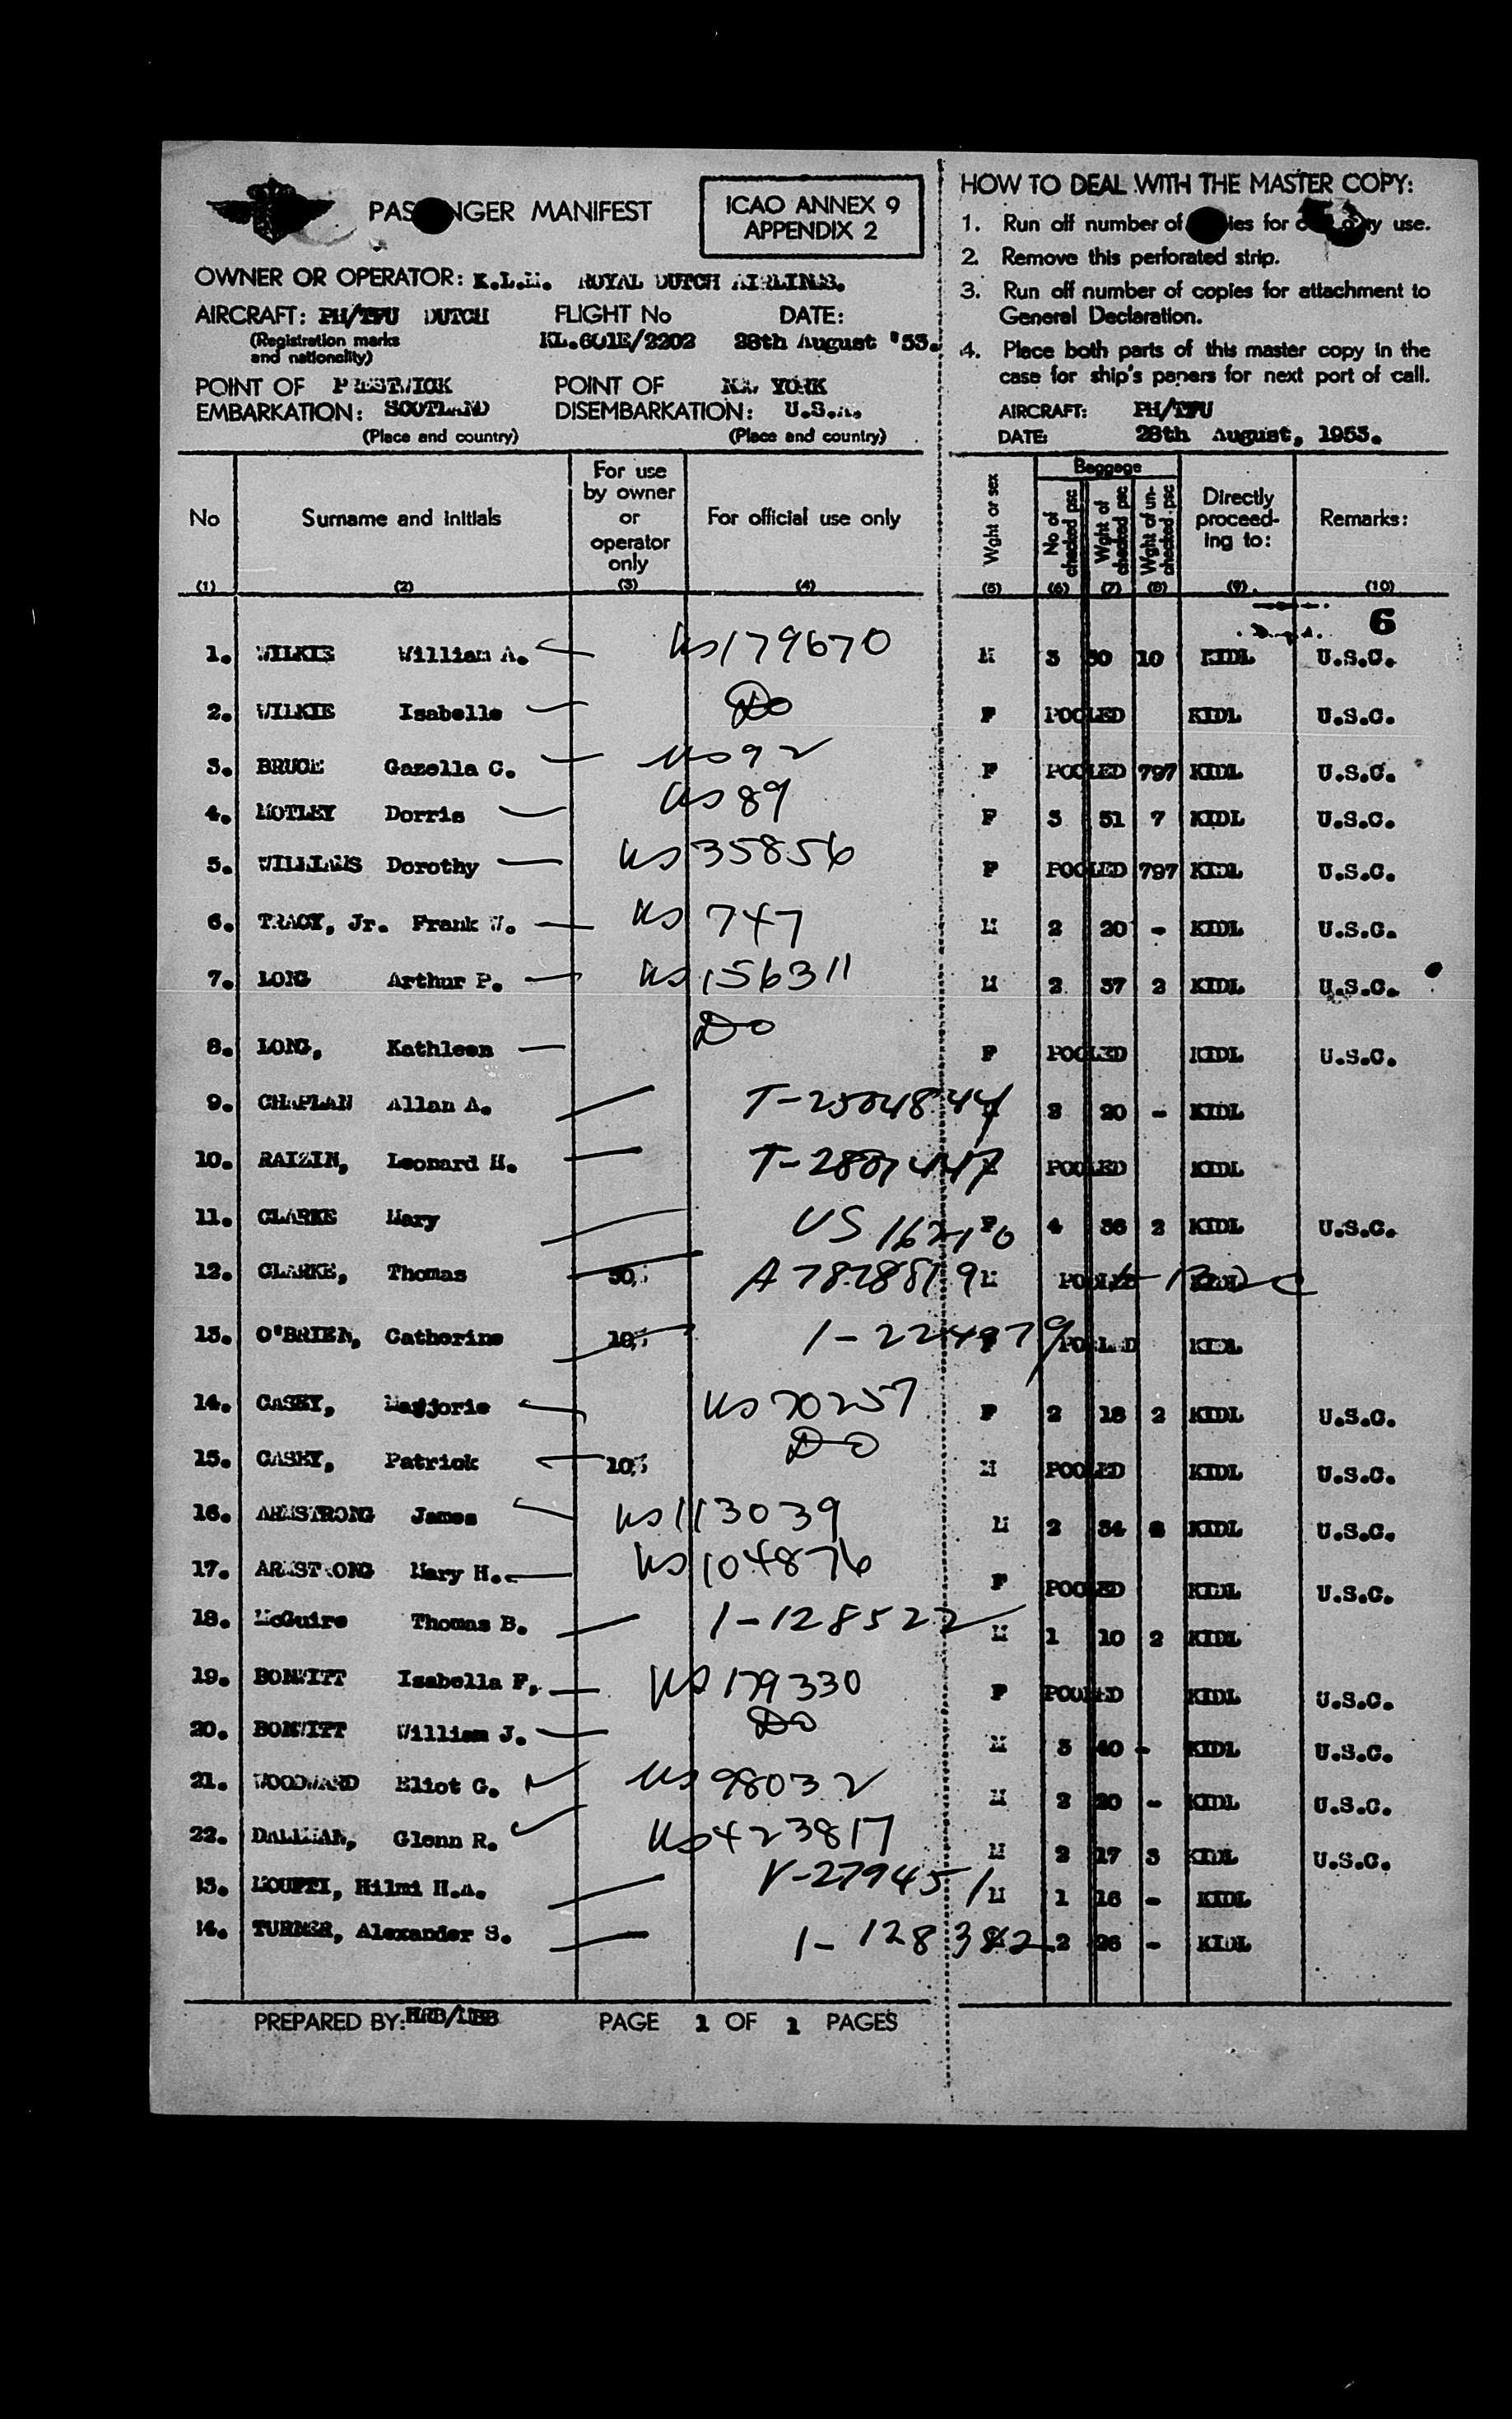 PASSENGER MANIFEST
ICAO ANNEX 9
APPENDIX 2
OWNER OR OPERATOR: K.L.M. ROYAL DUTCH AIRLINES.
AIRCRAFT: PH/TFU DUTCH FLIGHT No DATE:
(Registration marks and nationality) KL.601E/2202 28th August '53.
POINT OF EMBARKATION: PRESTWICK SCOTLAND
(Place and country)
POINT OF DISEMBARKATION: NEW YORK U.S.A.
(Place and country)
HOW TO DEAL WITH THE MASTER COPY:
1. Run off number of copies for use.
2. Remove this perforated strip.
3. Run off number of copies for attachment to
General Declaration.
4. Place both parts of this master copy in the
case for ship's papers for next port of call.
AIRCRAFT: PH/TFU
DATE: 28th August, 1953.
No Surname and initials For use by owner or operator only For official use only Wght or sex Baggage No of checked psc Wght of checked psc Wght of un-checked psc Directly proceed-ing to: Remarks:
(1) (2) (3) (4) (5) (6) (7) (8) (9) (10)
6
1. WILKIE William A. US 179670 M 3 30 10 KIDL U.S.C.
2. WILKIE Isabelle DO F POOLED KIDL U.S.C.
3. BRUCE Gazella C. US 92 F POOLED 797 KIDL U.S.C.
4. MOTLEY Dorris US 89 F 3 31 7 KIDL U.S.C.
5. WILLIAMS Dorothy US 35856 F POOLED 797 KIDL U.S.C.
6. TRACY, Jr. Frank W. US 747 M 2 20 - KIDL U.S.C.
7. LONG Arthur P. US 156311 M 2 37 2 KIDL U.S.C.
8. LONG, Kathleen DO F POOLED KIDL U.S.C.
9. CHAPLAN Allan A. T-2504844 20 - KIDL
10. RAIZIN, Leonard H. POOLED KIDL
11. CLARKE Mary US 162180 F 4 36 2 KIDL U.S.C.
12. CLARKE, Thomas A 7828819 M POOLED KIDL
13. O'BRIEN, Catherine 1-224979 POOLED KIDL
14. CASEY, Marjorie US 70257 F 2 18 2 KIDL U.S.C.
15. CASEY, Patrick DO M POOLED KIDL U.S.C.
16. ARMSTRONG James US 113039 M 2 34 KIDL U.S.C.
17. ARMSTRONG Mary H. US 104876 F POOLED KIDL U.S.C.
18. McGuire Thomas B. 1-128522 M 1 10 2 KIDL
19. BONWITT Isabella F. US 179330 F POOLED KIDL U.S.C.
20. BONWITT William J. DO M 3 40 - KIDL U.S.C.
21. WOODWARD Eliot G. US 98032 M 2 20 - KIDL U.S.C.
22. DALLMAN, Glenn R. US 423817 M 2 17 3 KIDL U.S.C.
13. MOUFTI, Hilmi H.A. V-279451 M 1 16 - KIDL
14. TURNER, Alexander S. 1-128382 2 26 - KIDL
PREPARED BY: PAGE 1 OF 1 PAGES